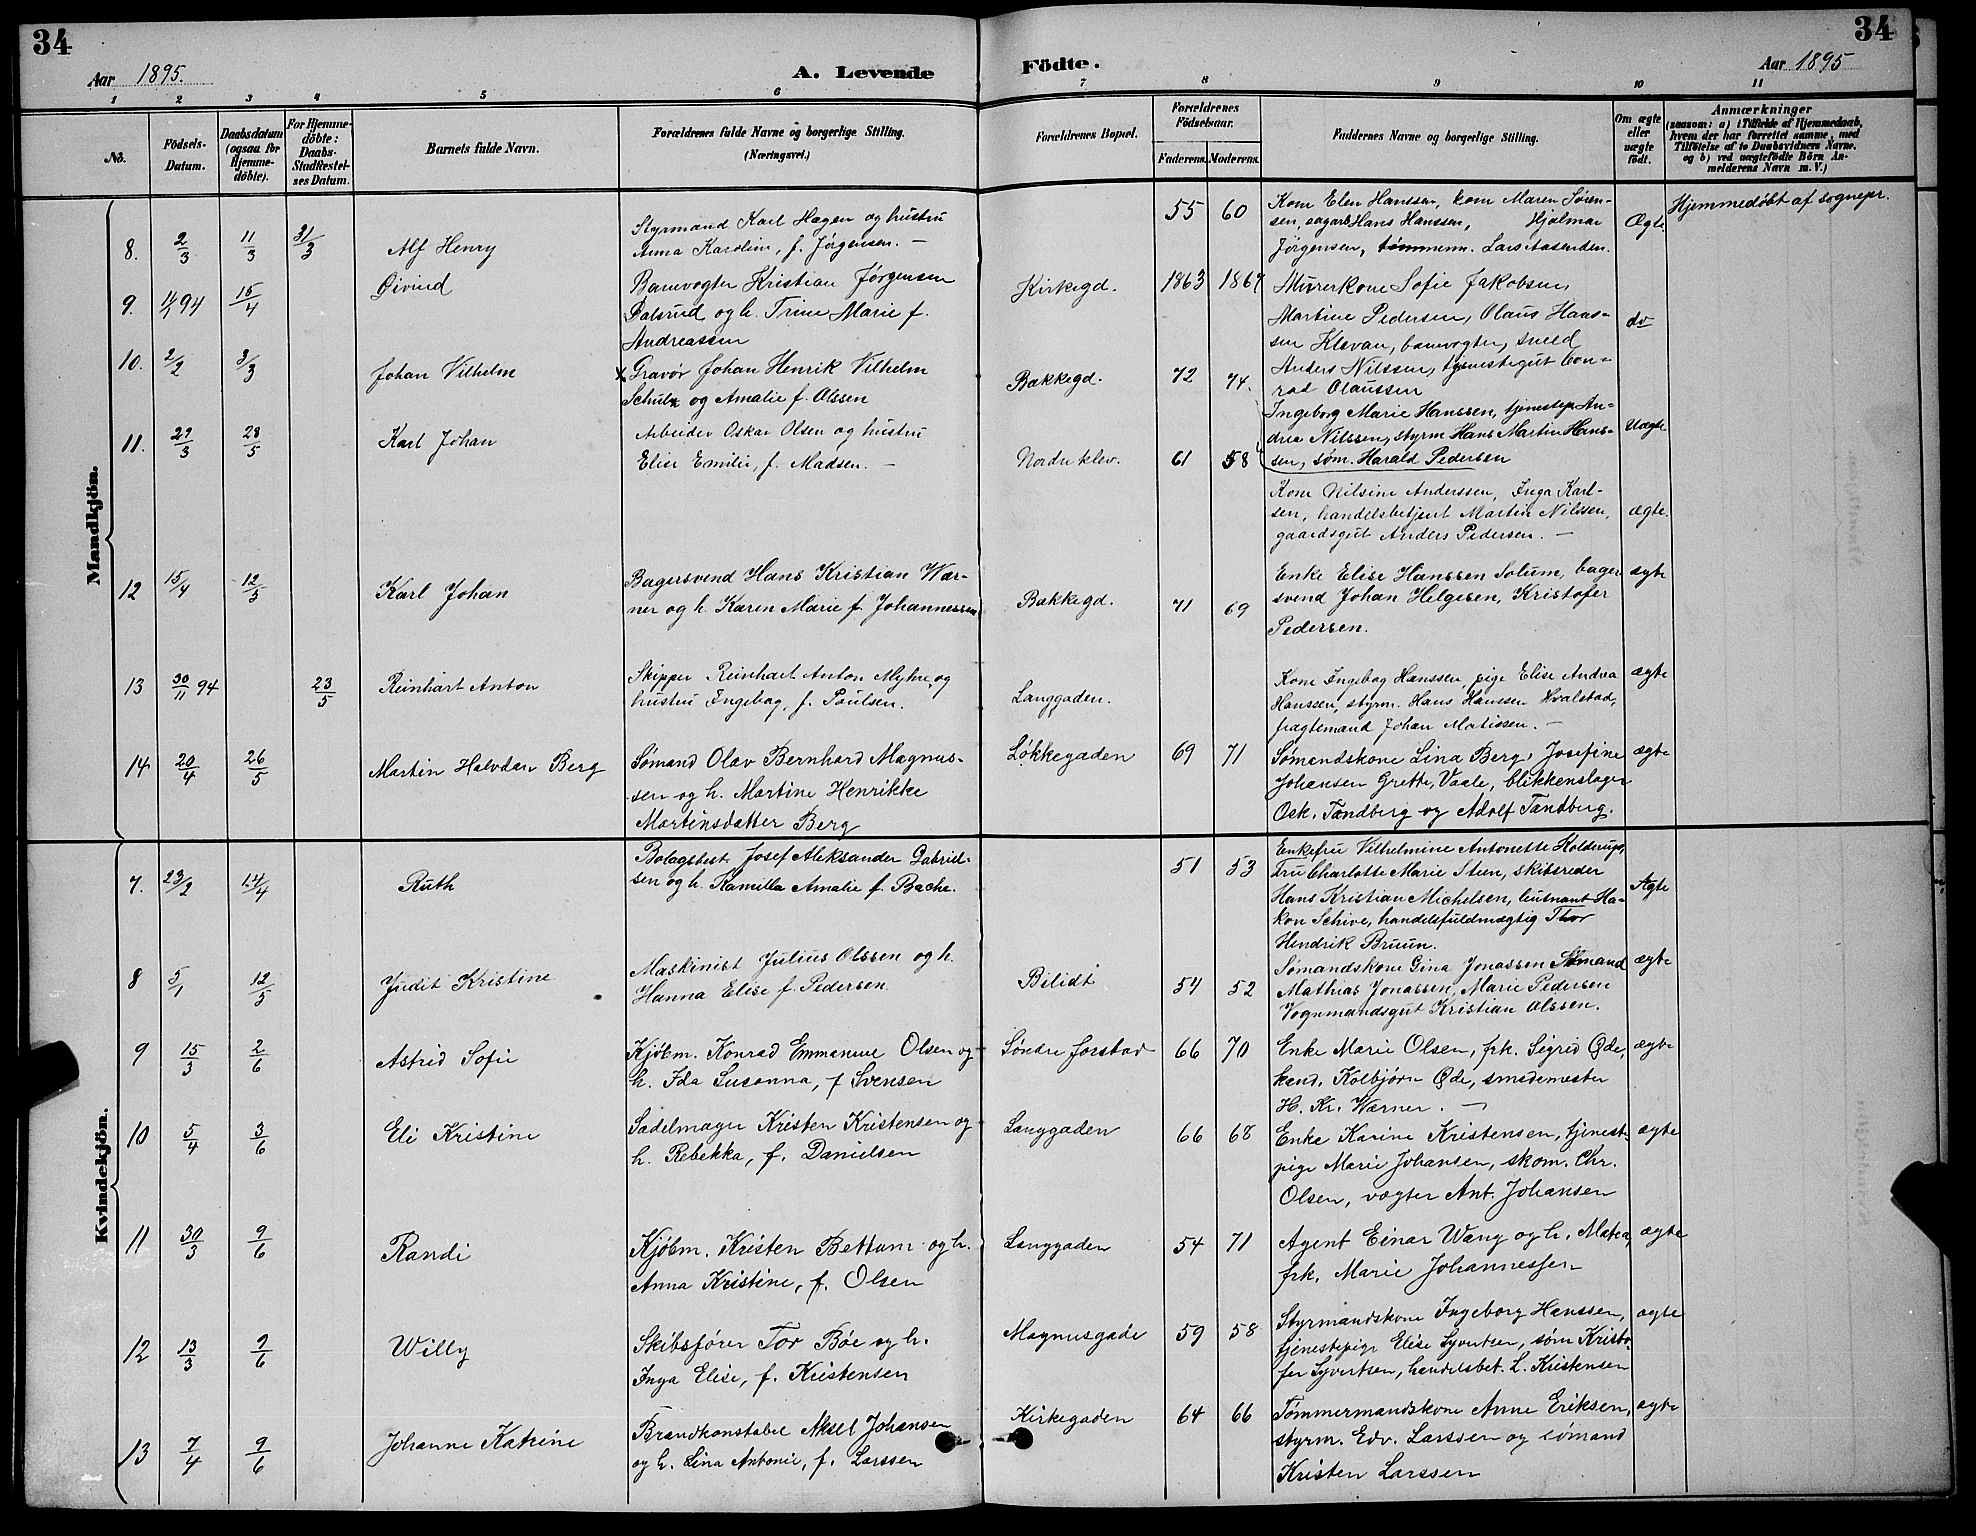 34
34
Aar 1895.
A. Levende
Födte.
Aar 1895
1 2 3 4 5 6 7 8 9 10 11
No.
Födsels-
Datum.
Daabsdatum
(ogsaa for
Hjemme-
döbte).
For Hjemme-
döbte:
Daabs-
Stadfæstel-
ses Datum.
Barnets fulde Navn.
Forældrenes fulde Navne og borgerlige Stilling.
(Næringsvei.)
Forældrenes Bopæl.
Forældrenes
Födselsaar.
Faderens. Moderens.
Faddernes Navne og borgerlige Stilling.
Om ægte
eller
uægte
födt.
Anmærkninger
(saasom: a) i Tilfælde af Hjemmedaab,
hvem der har forrettet samme, med
Tilföielse af to Daabsvidners Navne,
og b) ved uægtefödte Börn An-
melderens Navn m. V.)
Mandkjön.
8. 2/3 11/3 31/3 Alf Henry
Styrmand Karl Hagen og hustru
Anna Karoline, f. Jørgensen. —
55 60
Kone Elen Hanssen, kone Maren Søren-
sen, sagarb Hans Hanssen, Hjalmar
Jörgensen, tømmerm. Lars Aasenden.
Ægte
Hjemmedöbt af sognepr.
9. 94 15/4 Øivind
Banevogter Kristian Jørgensen
Dalsrud og h. Trine Marie f.
Andreassen
Kirkegd.
1863 1867
Murerkone Sofie Jakobsen,
Martine Pedersen, Olaus Hans-
sen Klevan, banevogter, sneld
Anders Nilssen, tjenestegut Con-
rad Olaussen
do
10. 2/2 3/3 Johan Vilhelm
x Gravør Johan Henrik Vilhelm
Schulz og Amalie f. Olssen
Bakkegd.
72 74.
Ingeborg Marie Hanssen, tjenestep An-
drea Nilssen, styrm Hans Martin Hans-
sen, søm. Harald Pedersen
Uægte
11. 27/3 28/5 Karl Johan
Arbeider Oskar Olsen og hustru
Elise Emilie, f. Madsen. —
Nordre klev.
61 58
Kone Nilsine Anderssen, Inga Karl-
sen, handelsbetjent Martin Nilssen,
gaardsgut Anders Pedersen. —
ægte.
12 15/4 12/5 Karl Johan
Bagersvend Hans Kristian Wær-
ner og h. Karen Marie f. Johannessen
Bakkegd.
71 69
Enke Elise Hanssen Solum, bager
svend Johan Helgesen, Kristofer
Pedersen.
ægte
13 30/11 94 23/5 Reinhart Anton
Skipper Reinhart Anton Myhre og
hustru Ingebog, f. Poulsen.
Langgaden.
Kone Ingebog Hanssen pige Elise Andrea
Hanssen, styrm. Hans Hanssen Hvalstad,
fragtemand Johan Matissen. —
ægte
14 20/4 26/5 Martin Halvdan Berg
Sømand Olav Bernhard Magnus-
sen og h. Martine Henrikke
Martinsdatter Berg
Løkkegaden
69 71
Sømandskone Lina Berg, Josefine
Johansen Grette, Vaale, blikkenslager
Osk. Tandberg og Adolf Tandberg.
ægte
Kvindekjön.
7. 23/2 14/4 Ruth
Bolagsbest. Josef Aleksander Gabriel-
sen og h. Kamilla Amalie f. Bache.
51 53
Enkefru Vilhelmine Antonette Holderup,
Fru Charlotte Marie Steen, skibsreder
Hans Kristian Michelsen, leutnant Ha-
kon Schive, handelsfuldmægtig Thor
Hendrik Bruun.
Ægte
8 5/1 12/5 Judit Kristine
Maskinist Julius Olssen og h.
Hanna Elise f. Pedersen
Bilidt
54 52
Sømandskone Gina Jonassen Sømand
Mathias Jonassen, Marie Pedersen
Vognmandsgut Kristian Olssen.
ægte
9 15/3 2/6 Astrid Sofie
Kjøbm. Konrad Emmanuel Olsen og
h. Ida Susanna, f Svensen
Søndre forstad
66 70
Enke Marie Olsen, frk. Sigrid Øde,
kand. Kolbjørn Øde, smedemester
H. Kr. Wærner. —
ægte
10 5/4 3/6 Eli Kristine
Sadelmager Kristen Kristensen og
h. Rebekka, f. Danielsen
Langgaden
66 68
Enke Karine Kristensen, tjenest-
pige Marie Johansen, skom. Chr.
Olsen, vægter Ant. Johansen
ægte
11 30/3 9/6 Randi
Kjöbm. Kristen Bettum og h.
Anna Kristine, f. Olsen
Langgaden
54 71
Agent Einar Wang og h. Matea,
frk. Marie Johannessen
ægte
12 13/3 9/6 Willy
Skibsfører Tor Bøe og h.
Inga Elise, f. Kristensen
Magnusgade
59 58
Styrmandskone Ingeborg Hanssen,
tjenestepige Elise Syvertsen, søm Kristo-
fer Syvertsen, handelsbet. L. Kristensen
ægte
13 7/4 9/6 Johanne Katrine
Brandkonstabel Aksel Johansen
og h. Lina Antonie, f. Larssen
Kirkegaden
64 66
Tømmermandskone Anne Eriksen,
styrm. Edv. Larssen og sømand
Kristen Larssen
ægte